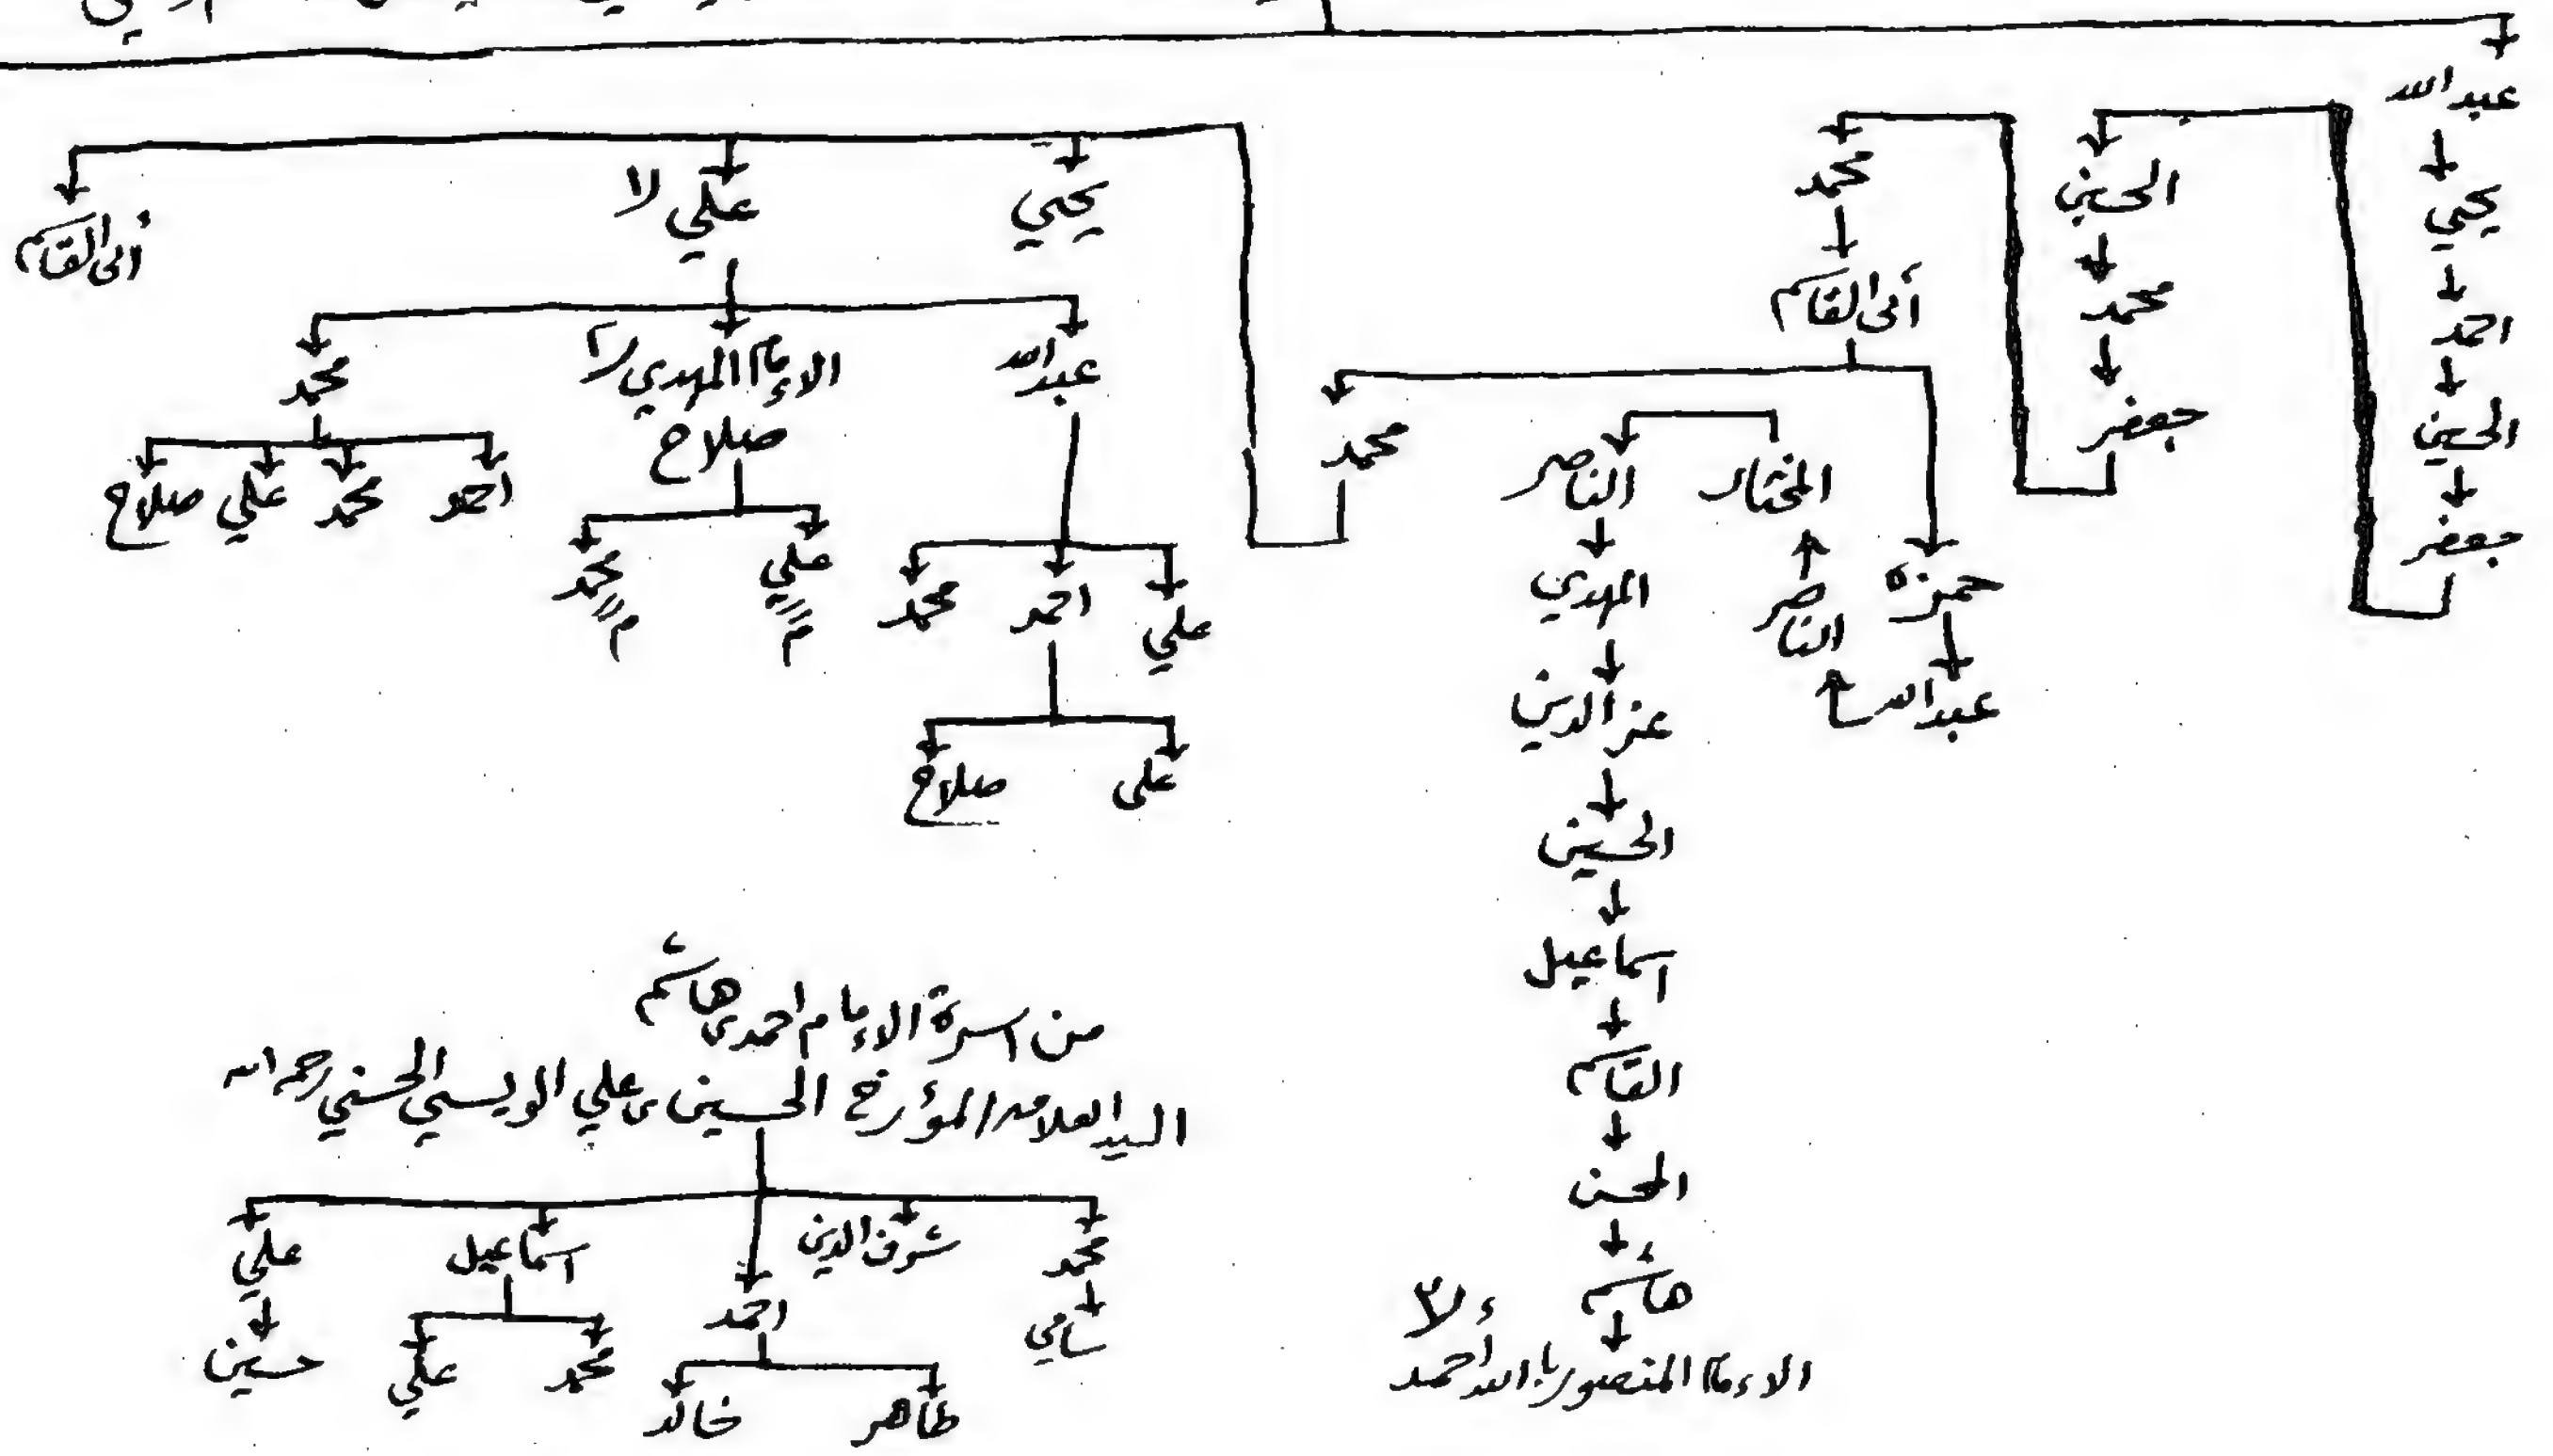 عبدالله
يحيي
احمد
الحسين
جعفر
الحسين
محمد
جعفر
محمد
أبى القاسم
حمزه
عبدالله
الناصر
المختار
الناصر
المهدي
عز الدين
الحسين
اسماعيل
القاسم
الحسن
هاشم
الإمام المنصور بالله احمد
محمد
يحيي
علي لا
أبى القاسم
عبدالله
الإمام المهدي
صلاح
محمد
علي احمد محمد
علي صلاح
علي م محمد م
احمد محمد علي صلاح
من اسرة الإمام احمد بن هاشم
السيد العلامه المؤرخ الحسين بن علي الويسي الحسني رحمه الله
محمد شرف الدين احمد اسماعيل علي
سامي
طاهر خالد
محمد علي
حسين